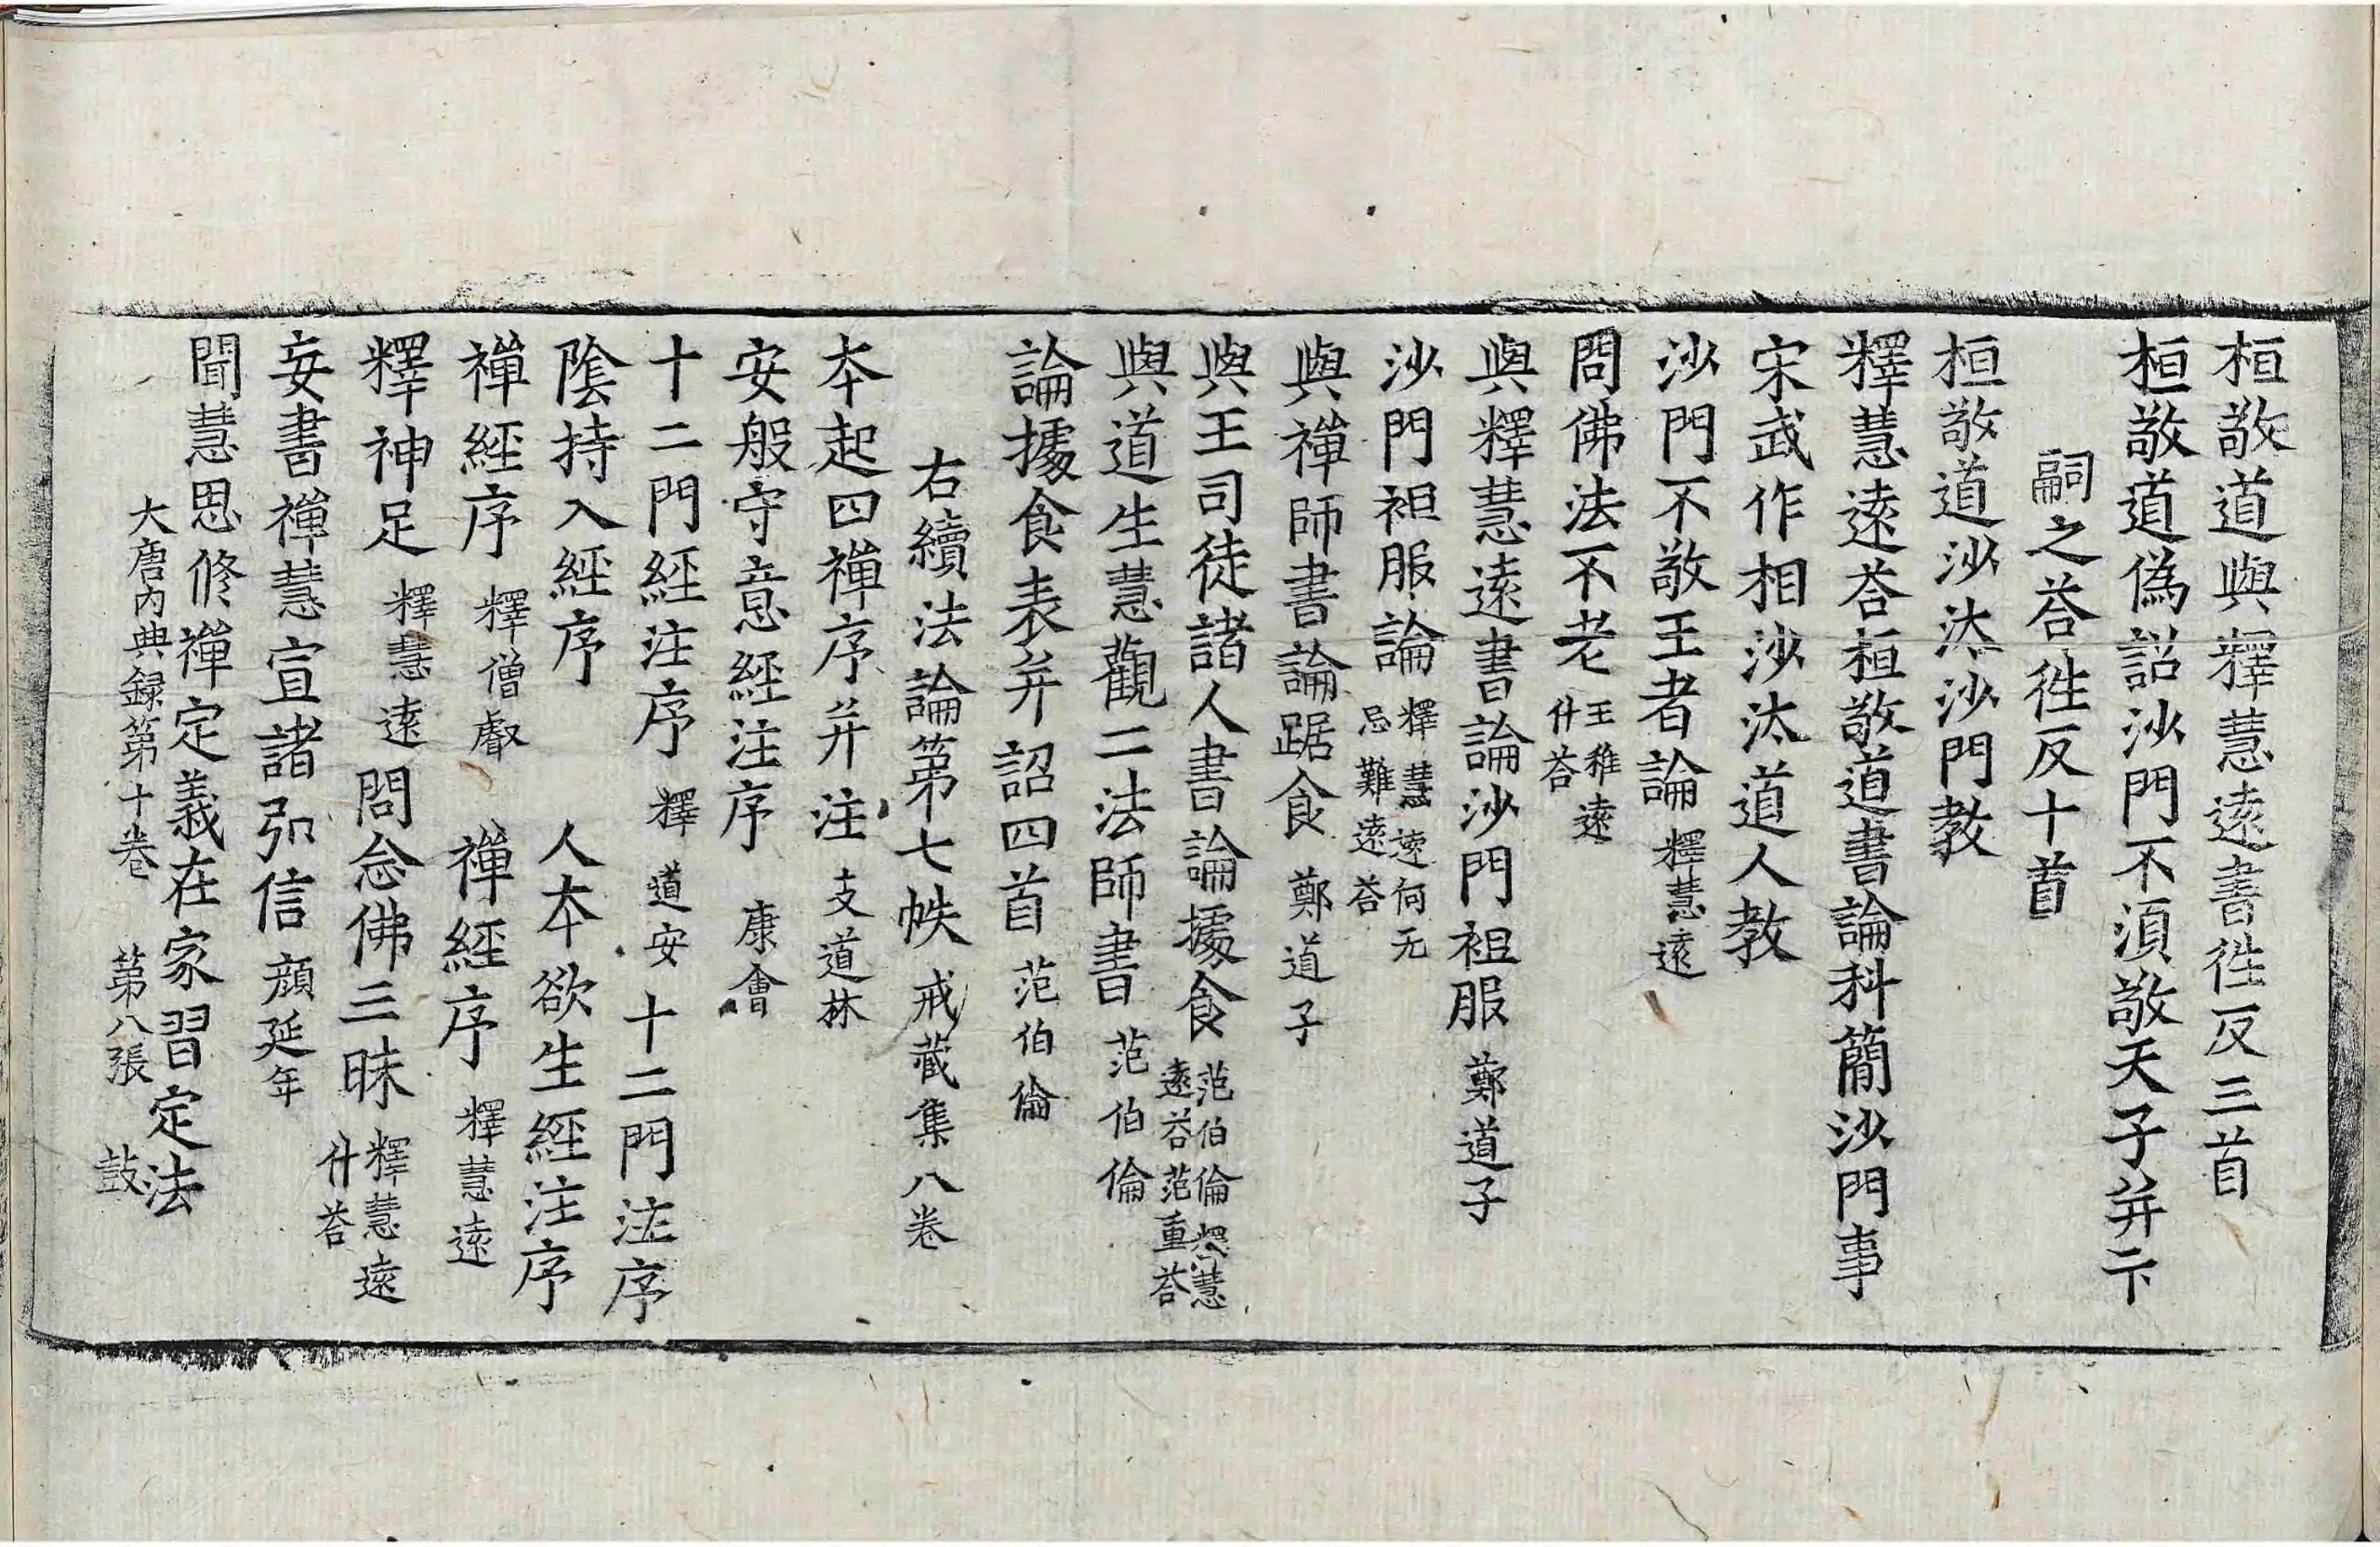 桓敬道與釋慧遠書徃反三首
桓敬道偽詔沙門不須敬天子并卞
嗣之荅徃反十首
桓敬道沙汰沙門教
釋慧遠荅桓敬道書論科簡沙門事
宋武作相沙汰道人教
沙門不敬王者論 釋慧遠
問佛法不老 王稚遠
什荅
與釋慧遠書論沙門袒服 鄭道子
沙門袒服論 釋慧遠何无
忌難遠荅
與禪師書論踞食 鄭道子
與王司徒諸人書論據食 范伯倫釋慧
遠荅范重荅
與道生慧觀二法師書 范伯倫
論據食表并詔四首 范伯倫
右續法論第七帙 戒藏集八卷
本起四禪序并注 支道林
安般守意經注序 康會
十二門經注序 釋道安 十二門注序
陰持入經序 人本欲生經注序
禪經序 釋僧叡 禪經序 釋慧遠
釋神足 釋慧遠 問念佛三昧 釋慧遠
什荅
妄書禪慧宣諸弘信 顔延年
聞慧思修禪定義在家習定法
大唐內典録第十卷 第八張 鼓